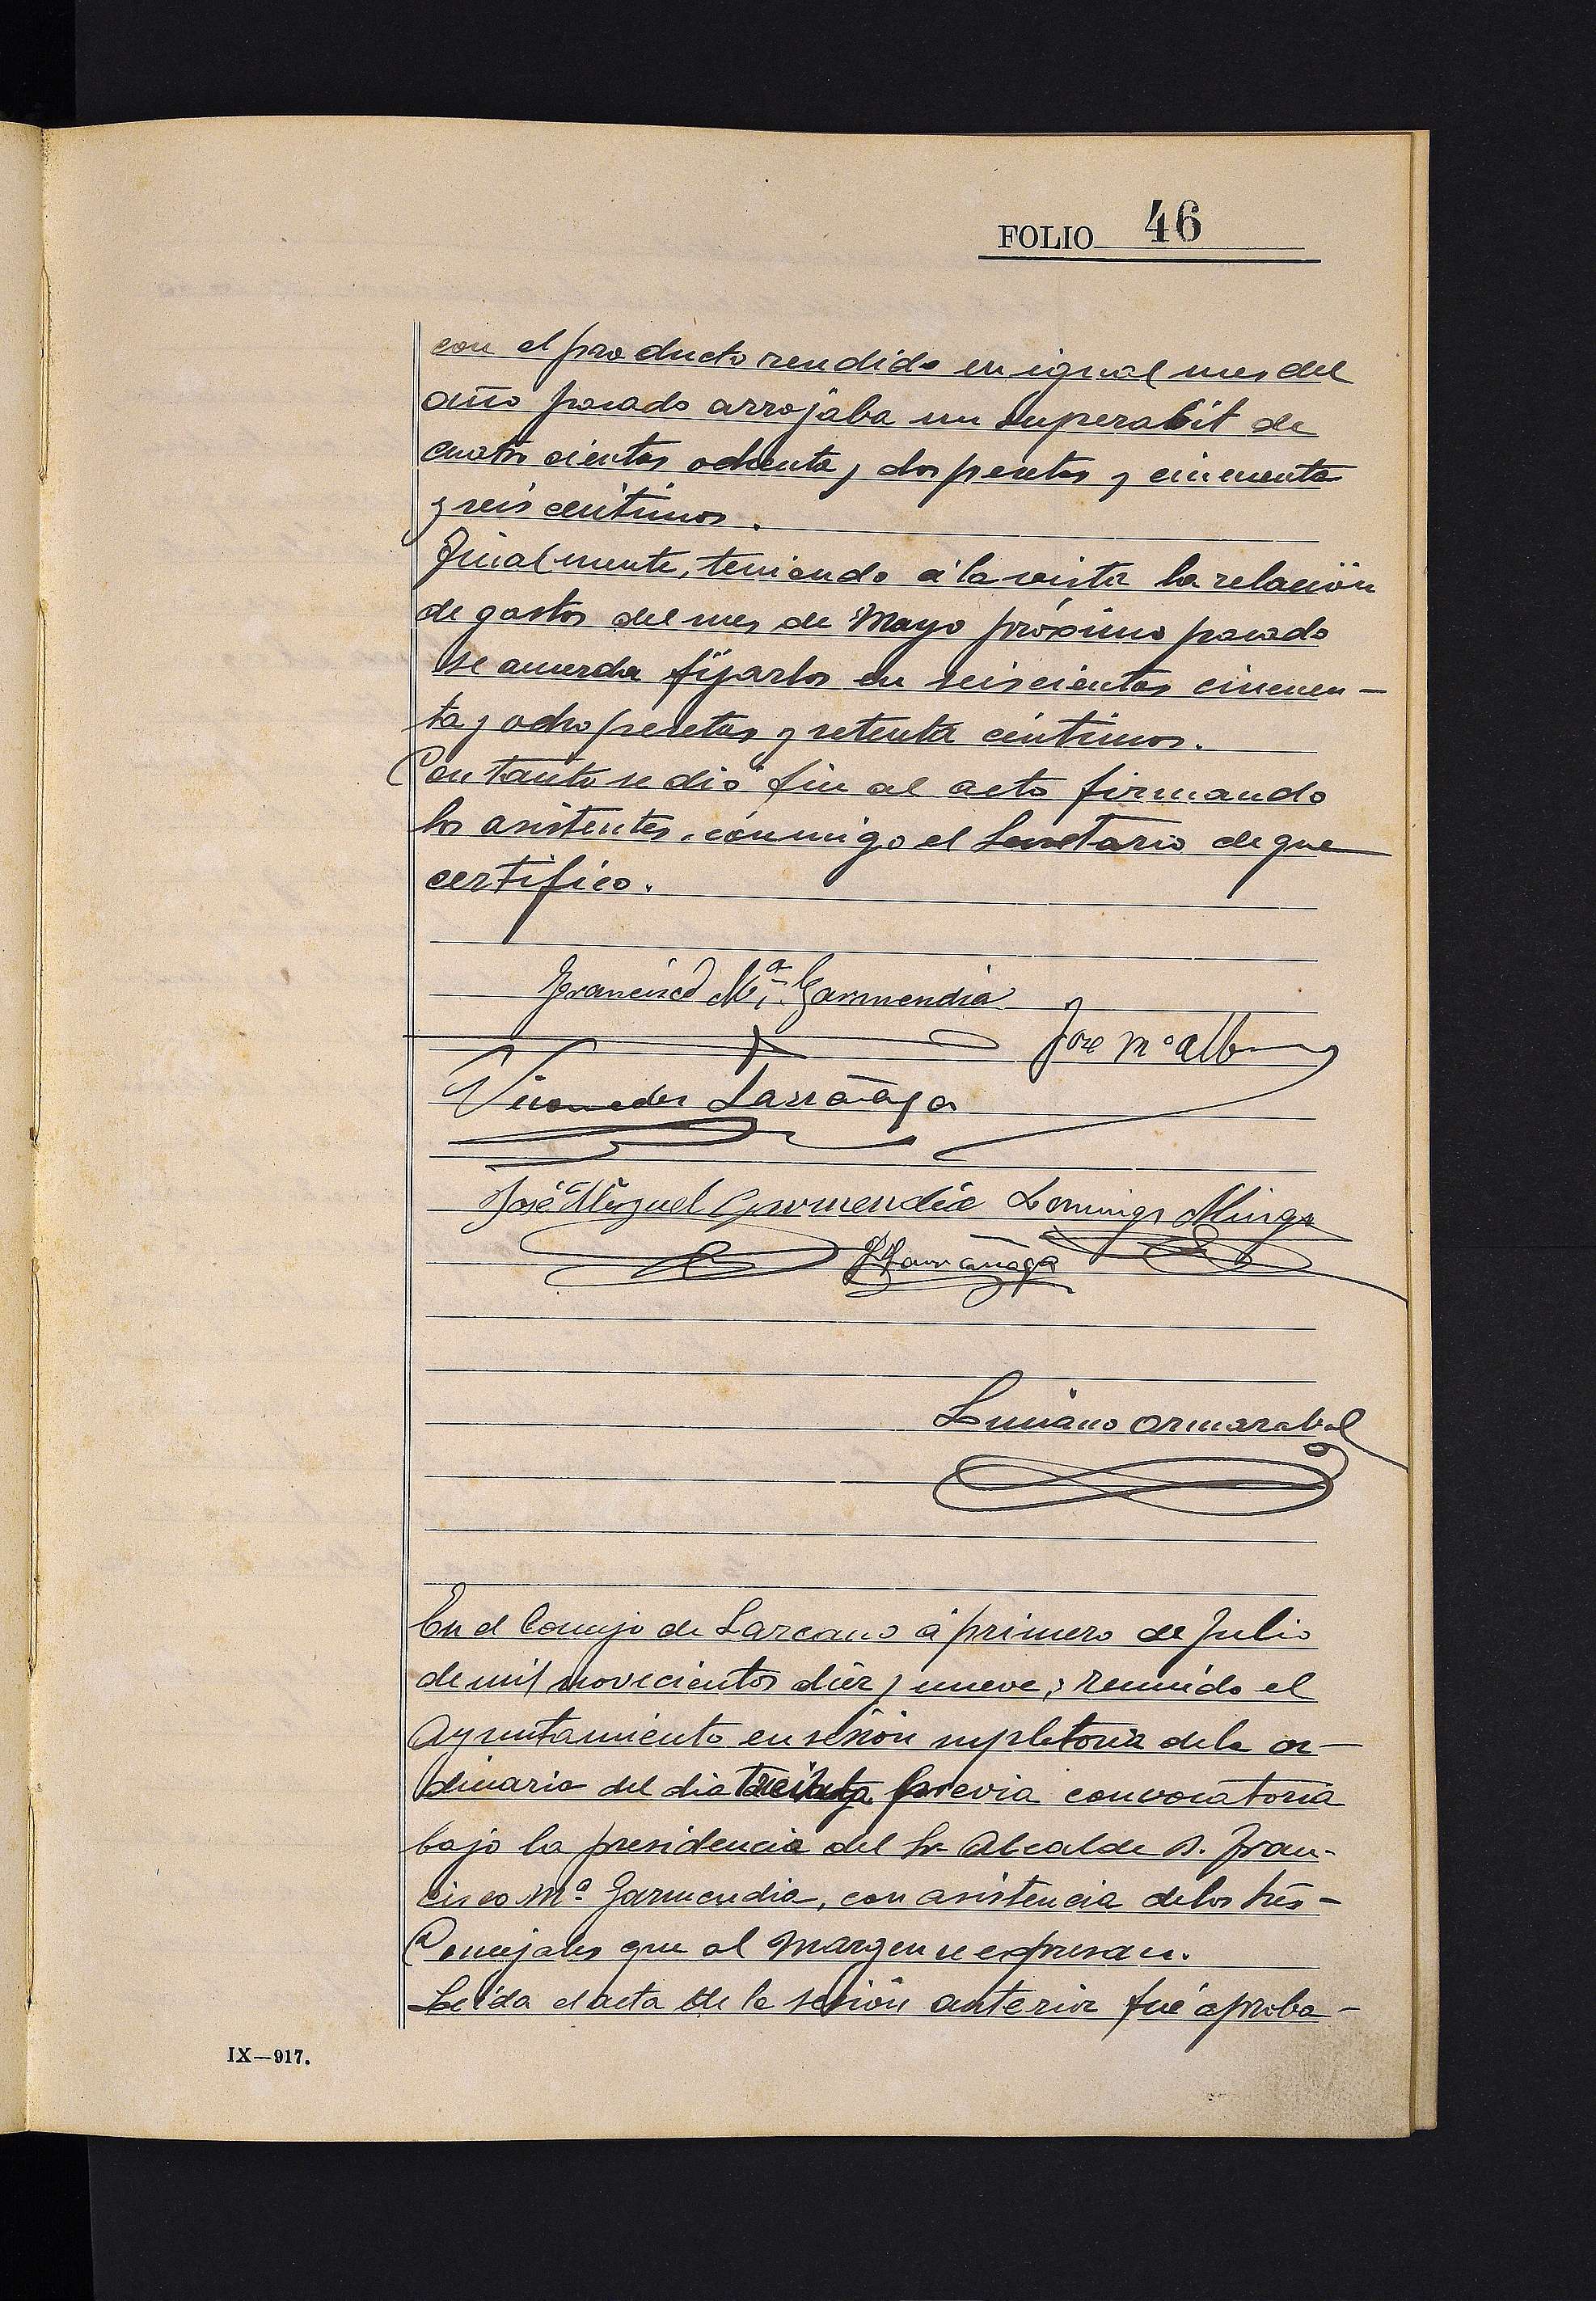 FOLIO 46
con el producto rendido en igual mes del
año pasado arrojaba un superabit de
cuatro cientas ochenta y dos pesetas y cincuenta
y seis céntimos.
Finalmente, teniendo á la vista la relación
de gastos del mes de Mayo próximo pasado
se acuerda fijarlos en seiscientas cincuen-
ta y ocho pesetas y setenta céntimos.
Con tanto se dió fin al acto firmando
los asistentes, conmigo el Secretario de que
certifico.
Francisco Mª. Garmendia
José Mª Alb
Nicomedes Larrañaga
José Miguel Garmendia Domingo Minga
J. Larrañaga
Luciano Ormazabal
En el Concejo de Lazcano á primero de Julio
de mil novecientos diez y nueve; reunido el
Ayuntamiento en sesión supletoria de la or-
dinaria del dia treinta previa convocatoria
bajo la presidencia del Sr. Alcalde D. Fran-
cisco Mª Garmendia, con asistencia de los tres
Concejales que al margen se expresan.
Leída el acta de la sesión anterior fué aproba-
IX—917.